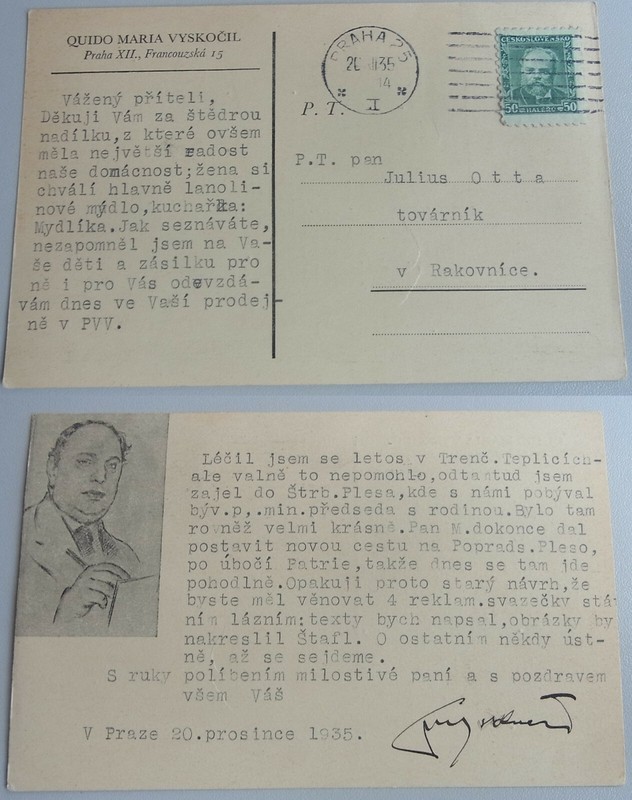 QUIDO MARIA VYSKOČIL
Praha XII., Francouzská 15
Vážený příteli,
Děkuji Vám za štědrou
nadílku,z které ovšem
měla největší radost
naše domácnost;žena si
chválí hlavně lanoli-
nové mýdlo,kuchařka:
Mydlíka.Jak seznáváte,
nezapomněl jsem na Va-
še děti a zásilku pro
ně i pro Vás odevzdá-
vám dnes ve Vaší prodej-
ně v PVV.
PRAHA 25
35
14
I
ČESKOSLOVENSKO
50 HALÉŘŮ 50
P. T.
P.T. pan
Julius Otta
továrník
v Rakovníce.
Léčil jsem se letos v Trenč.Teplicích-
ale valně to nepomohlo,odtamtud jsem
zajel do Štrb.Plesa,kde s námi pobýval
býv.p,.min.předseda s rodinou.Bylo tam
rovněž velmi krásně.Pan M.dokonce dal
postavit novou cestu na Poprads.Pleso,
po úbočí Patrie,takže dnes se tam jde
pohodlně.Opakuji proto starý návrh,že
byste měl věnovat 4 reklam.svazečky stát
ním lázním:texty bych napsal,obrázky by
nakreslil Štafl. O ostatním někdy úst-
ně, až se sejdeme.
S ruky políbením milostivé paní a s pozdravem
všem Váš
V Praze 20.prosince 1935.